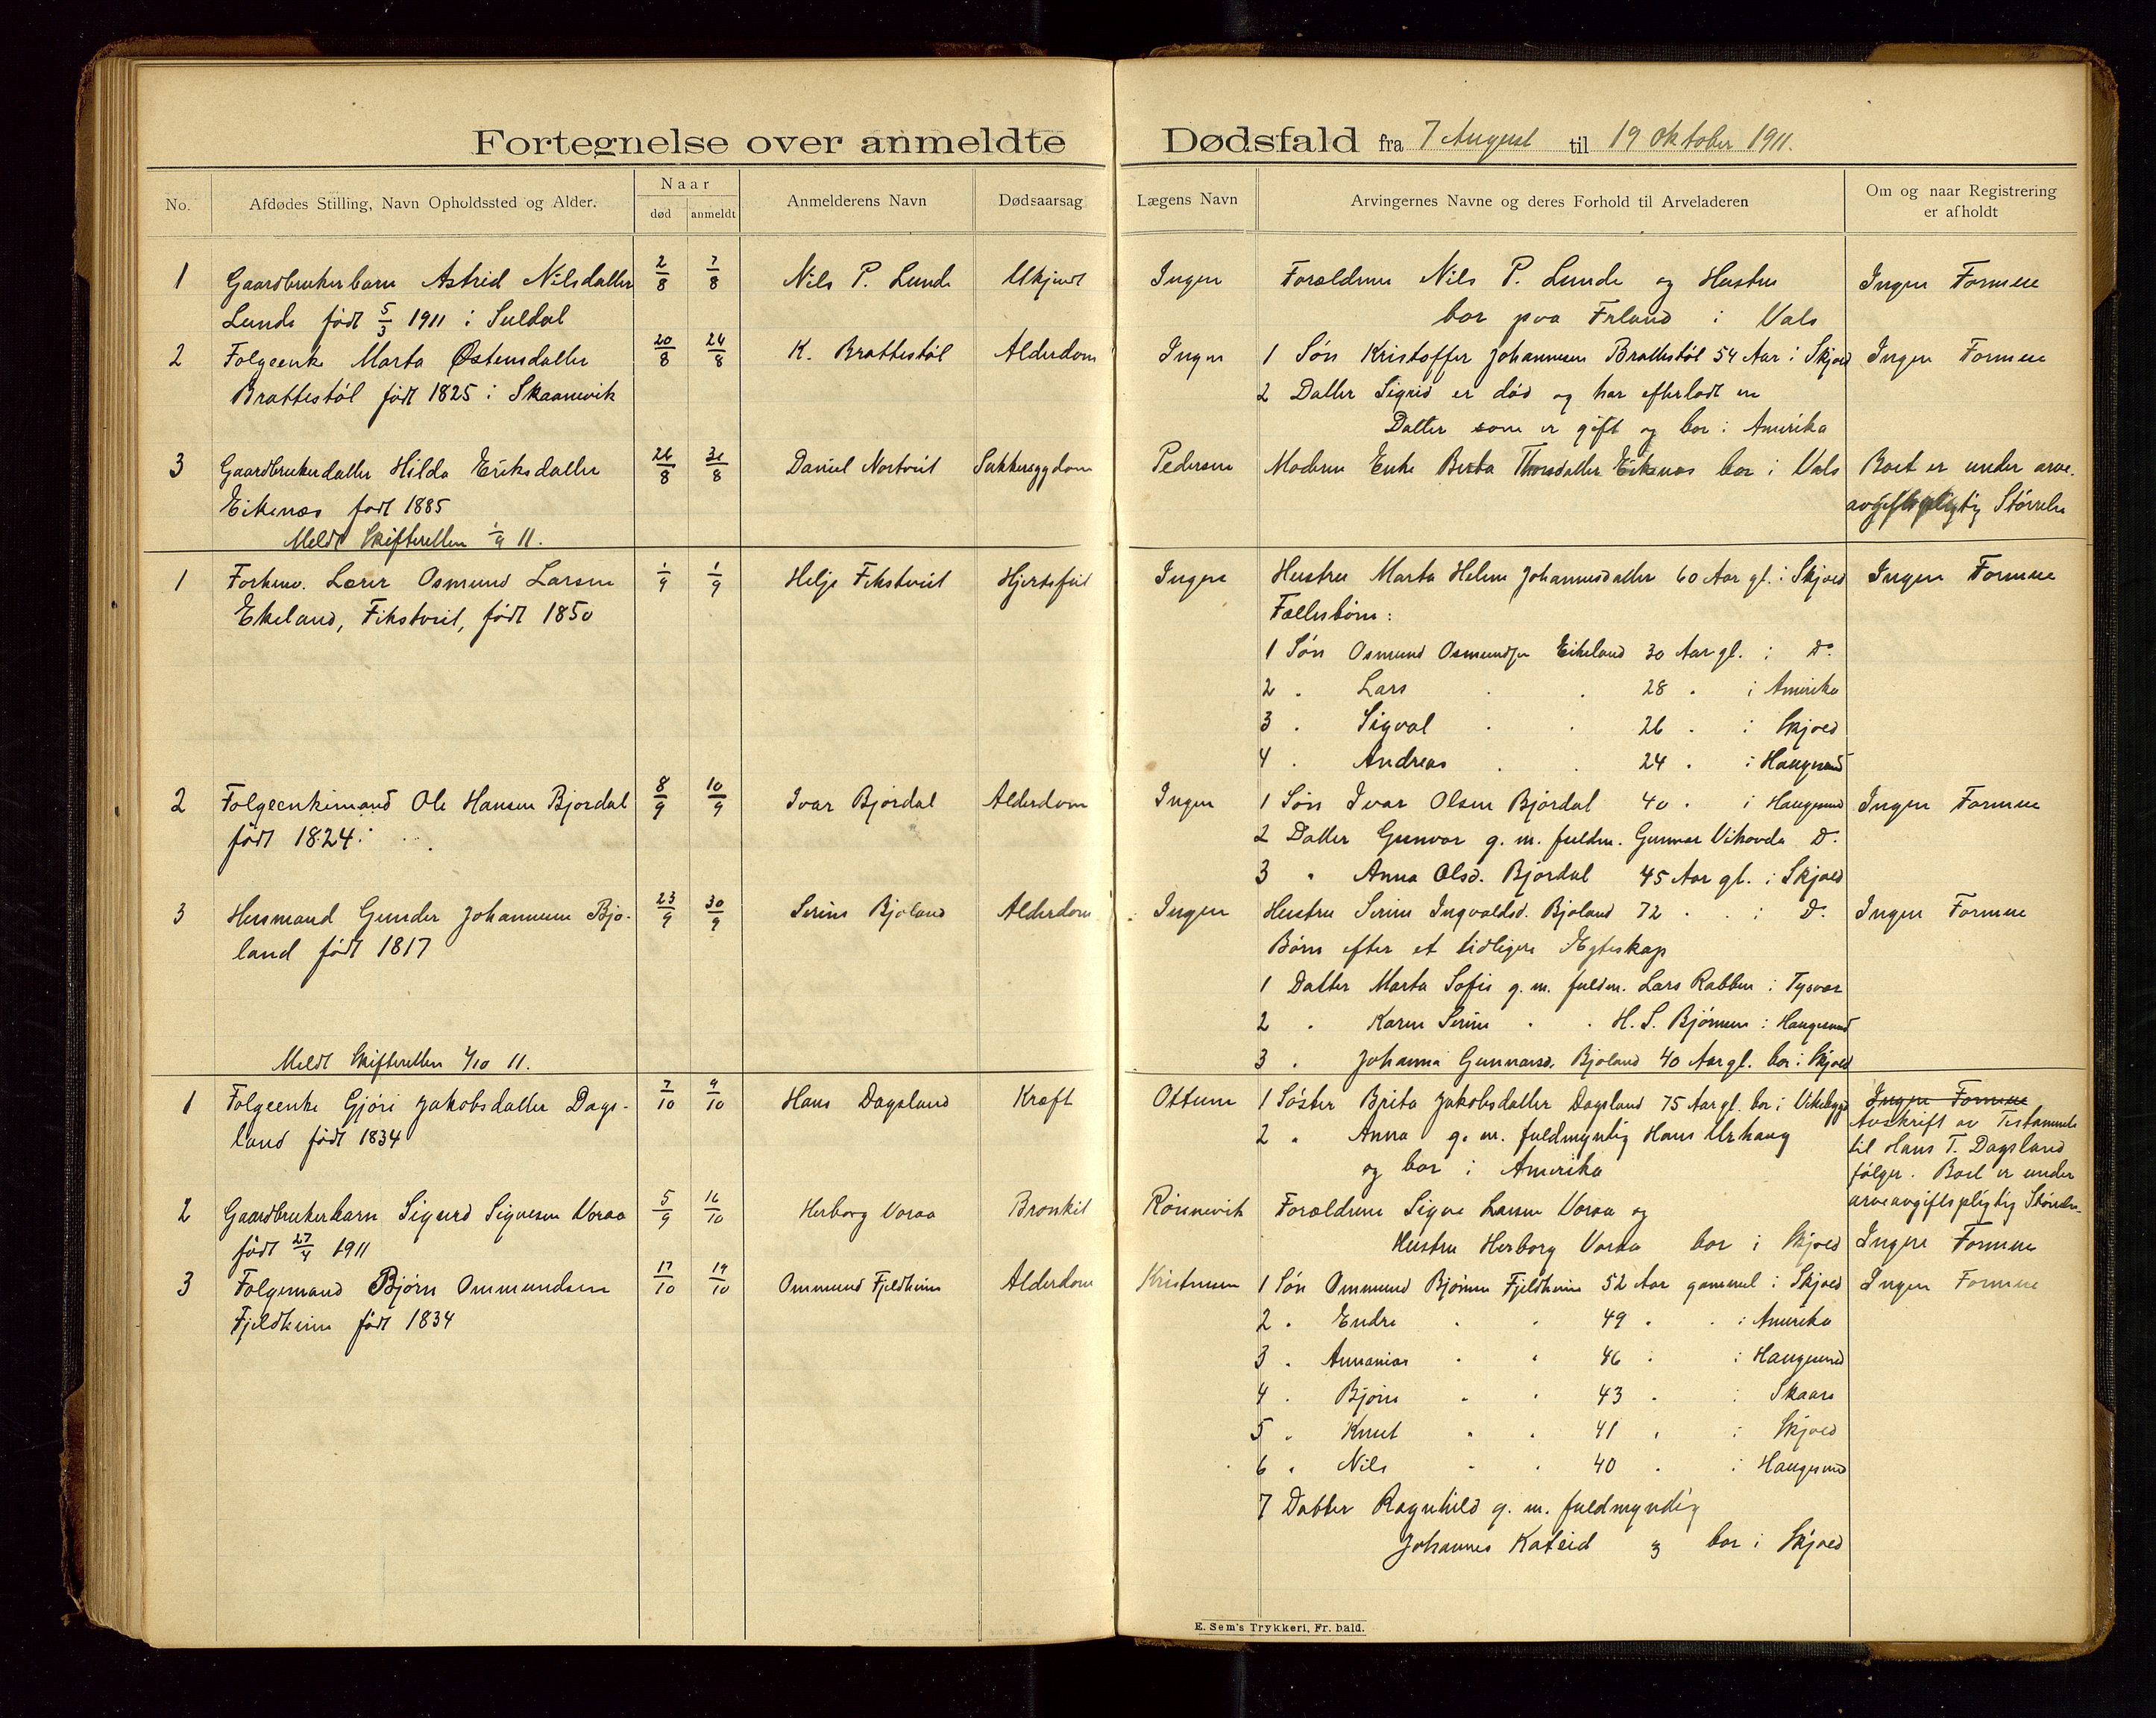 Fortegnelse over anmeldte Dødsfald fra 7 August til 19 Oktober 1911.
No.
Afdødes Stilling, Navn Opholdssted og Alder.
Naar
død
anmeldt
Anmelderens Navn
Dødsaarsag
Lægens Navn
Arvingernes Navne og deres Forhold til Arveladeren
Om og naar Registrering
er afholdt
1 Gaardbrukerbarn Astrid Nilsdatter 2/8 7/8 Nils P. Lunde Ukjendt Ingen Forældrene Nils P. Lunde og Hustru Ingen Formue
Lunde født 5/3 1911 i Suldal bor paa i Vats
2 Folgeenke Marta Østensdatter 20/8 24/8 K. Brattestøl Alderdom Ingen 1 Søn Kristoffer Johannesen Brattestøl 54 Aar i Skjold Ingen Formue
Brattestøl født 1825 i Skaanevik 2 Datter Sigrid er død og har efterladt en
Datter som er gift og bor i Amerika
3 Gaardbrukerdatter Hilda Eriksdatter 26/8 31/8 Daniel Nortveit Sukkersygdom Pedersen Moderen Enke Berta Thorsdatter Eikenæs bor i Vats Boet er under arve-
Eikenæs født 1885 avgiftspligtig Størrelse
Meldt Skifteretten 1/9 11.
1 Forhenv. Lærer Osmund Larsen 1/9 1/9 Helje Fikstveit Hjertefeil Ingen Hustru Marta Helene Johannesdatter 60 Aar gl. i Skjold Ingen Formue
Ekeland, Fikstveit, født 1850 Fællesbørn:
1 Søn Osmund Osmundsen Eikeland 30 Aar gl. i Do.
2 " Lars " " 28 " i Amerika
3 " Sigval " " 26 " i Skjold
4 " Andreas " " 24 " i Haugesund
2 Folgeenkemand Ole Hansen Bjordal 8/9 10/9 Ivar Bjordal Alderdom Ingen 1 Søn Ivar Olsen Bjordal 40 " i Haugesund Ingen Formue
født 1824. 2 Datter Gunvor g. m. fuldm. Gunnar Vikovda Do.
3 " Anna Olsd. Bjordal 45 Aar gl. i Skjold
3 Husmand Gunder Johannesen Bjo- 23/9 30/9 Serine Bjoland Alderdom Ingen Hustru Serine Ingvaldsd. Bjoland 72 " " i Do. Ingen Formue
land født 1817 Børn efter et tidligere Ægteskap
1 Datter Marta Sofie g. m. fuldm. Lars Rabben i Tysvær
2 " Karen Serine " " H. S. Bjørnsen i Haugesund
Meldt Skifteretten 1/10 11. 3 " Johanna Gunnarsd. Bjoland 40 Aar gl. bor i Skjold
1 Folgeenke Gjøri Jakobsdatter Dags- 7/10 9/10 Hans Dagsland Kræft Ottesen 1 Søster Brita Jakobsdatter Dagsland 75 Aar gl. bor i Vikebygd Ingen Formue
land født 1834 2 " Anna g. m. fuldmyndig Hans Urhaug Avskrift av Testamente
og bor i Amerika til Hans T. Dagsland
følger. Boet er under
arveavgiftspligtig Størrelse.
2 Gaardbrukerbarn Sigurd Sigvesen Voraa 5/9 16/10 Herborg Voraa Bronkit Rønnevik Forældrene Sigve Larsen Voraa og
født 27/4 1911 Hustru Herborg Voraa bor i Skjold Ingen Formue
3 Folgemand Bjørn Ommundsen 17/10 19/10 Ommund Fjeldheim Alderdom Kristensen 1 Søn Ommund Bjørnsen Fjeldheim 52 Aar gammel i Skjold Ingen Formue
Fjeldheim født 1834 2 " Endre " " 49 " " i Amerika
3 " Annanias " " 46 " i Haugesund
4 " Bjørn " " 43 " i Skaare
5 " Knut " " 41 " i Skjold
6 " Nils " " 40 " i Haugesund
7 Datter Ragnhild g. m. fuldmyndig
Johannes og bor i Skjold
E. Sem's Trykkeri, Fr. hald.